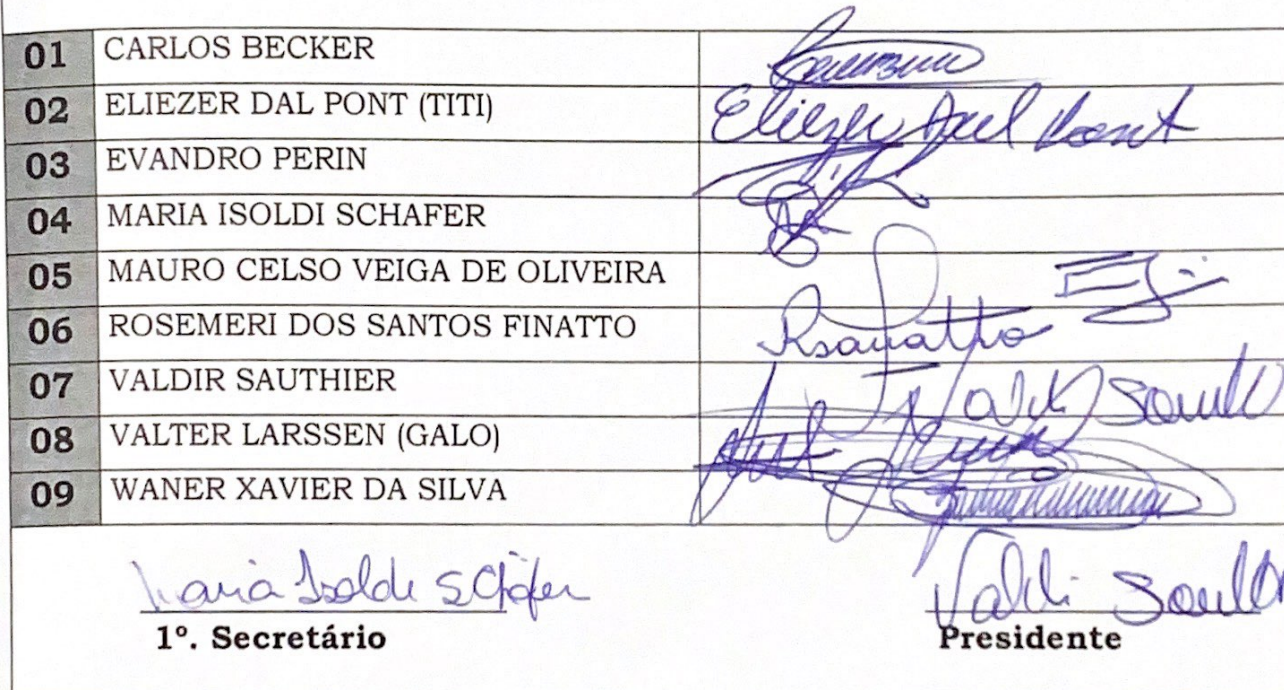 01 CARLOS BECKER
02 ELIEZER DAL PONT (TITI) Eliezer Dal Pont
03 EVANDRO PERIN
04 MARIA ISOLDI SCHAFER
05 MAURO CELSO VEIGA DE OLIVEIRA
06 ROSEMERI DOS SANTOS FINATTO
07 VALDIR SAUTHIER
08 VALTER LARSSEN (GALO)
09 WANER XAVIER DA SILVA
Maria Isolde Schäfer
1º. Secretário Presidente